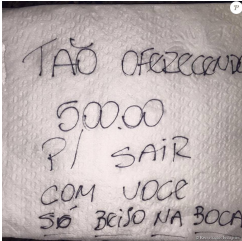 TÃO OFEREZECENDO
500.00
P/ SAIR
COM VOCE
SÓ BEISO NA BOCA